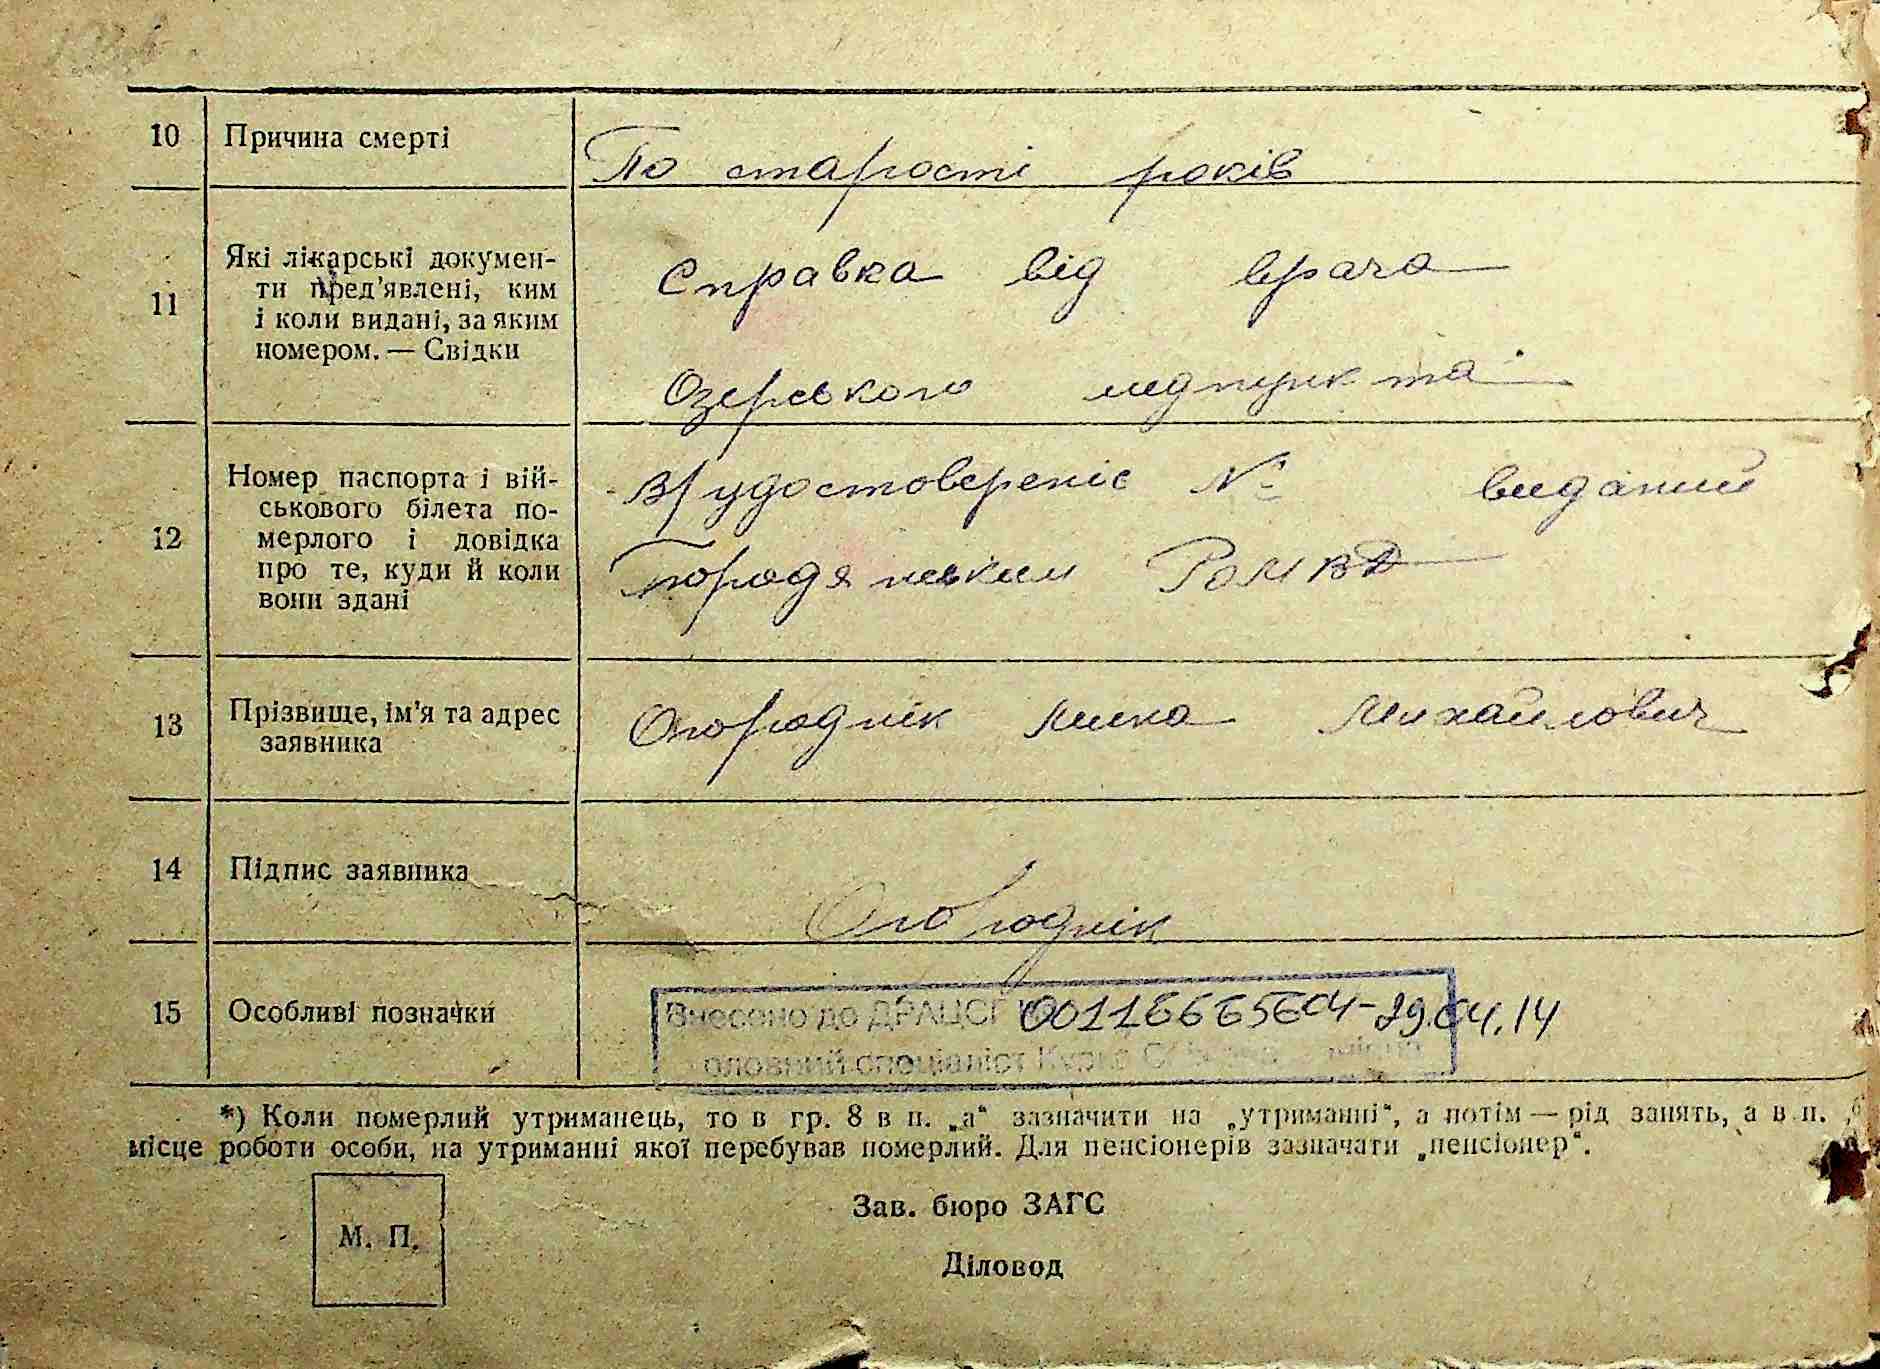 10 Причина смерті
По старості років
Які лікарські докумен-
ти пред'явлені, ким
11 і коли видані, за яким
номером. — Свідки
Справка від врача
Озерського медпункта
Номер паспорта і вій-
ськового білета по-
12 мерлого і довідка
про те, куди й коли
вони здані
В/удостовереніє № виданий
Бородянським РОМВД
13 Прізвище, ім'я та адрес
заявника
Огороднік Михайлович
14 Підпис заявника
Огороднік
15 Особливі позначки
Внесено до ДРАЦСГ 00116665604-29.04.14
головний спеціаліст
*) Коли померлий утриманець, то в гр. 8 в п. „а“ зазначити на „утриманні“, а потім — рід занять, а в п. „б
місце роботи особи, на утриманні якої перебував померлий. Для пенсіонерів зазначати „пенсіонер“.
Зав. бюро ЗАГС
М. П.
Діловод